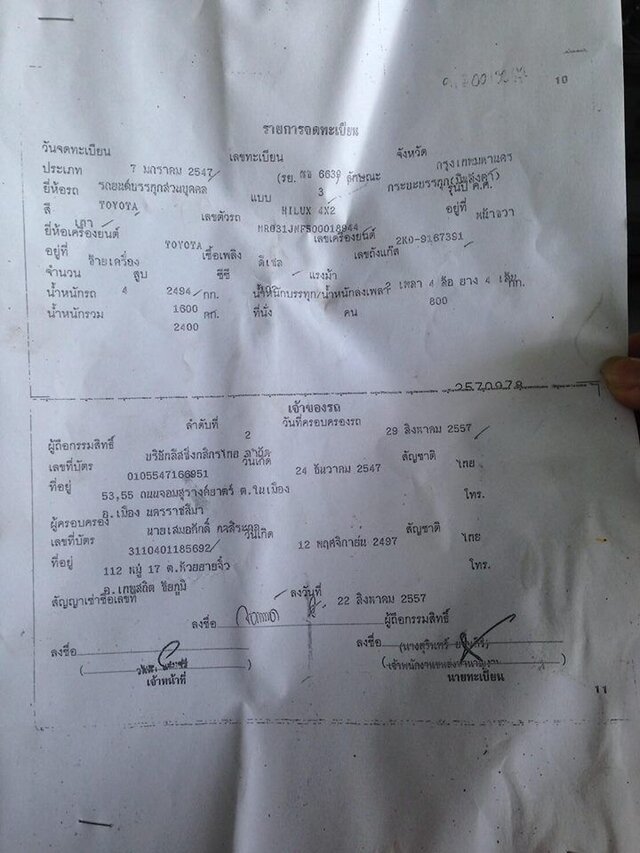 10
รายการจดทะเบียน
วันจดทะเบียน 7 มกราคม 2547 เลขทะเบียน 6639 จังหวัด กรุงเทพมหานคร
ประเภท รถยนต์บรรทุกส่วนบุคคล (รย. 3 ลักษณะ กระบะบรรทุก
ยี่ห้อรถ TOYOTA แบบ HILUX 4X2 รุ่นปี ค.ศ.
สี เทา เลขตัวรถ อยู่ที่ หน้าขวา
ยี่ห้อเครื่องยนต์ TOYOTA เลขเครื่องยนต์ 2KD-9167391
อยู่ที่ ซ้ายเครื่อง เชื้อเพลิง ดีเซล เลขถังแก๊ส
จำนวน 4 สูบ 2494 ซีซี แรงม้า 2 เพลา 4 ล้อ ยาง 4 เส้น
น้ำหนักรถ 1600 กก. น้ำหนักบรรทุก/น้ำหนักลงเพลา 800 กก.
น้ำหนักรวม 2400 กก. ที่นั่ง คน
2570978
เจ้าของรถ
ลำดับที่ 2 วันที่ครอบครองรถ 29 สิงหาคม 2557
ผู้ถือกรรมสิทธิ์ บริษัทลิสซิ่งกสิกรไทย จำกัด
เลขที่บัตร 0105547166951 วันเกิด 24 ธันวาคม 2547 สัญชาติ ไทย
ที่อยู่ 53,55 ถนนจอมสุรางค์ยาตร์ ต.ในเมือง โทร.
อ.เมือง นครราชสีมา
ผู้ครอบครอง นายเสมอศักดิ์
เลขที่บัตร 3110401185692 วันเกิด 12 พฤศจิกายน 2497 สัญชาติ ไทย
ที่อยู่ 112 หมู่ 17 ต.ห้วยยายจิ๋ว โทร.
อ.เทพสถิต ชัยภูมิ
สัญญาเช่าซื้อเลขที่ ลงวันที่ 22 สิงหาคม 2557
ลงชื่อ ผู้ถือกรรมสิทธิ์
ลงชื่อ ลงชื่อ
(นางสุรินทร์
เจ้าหน้าที่ นายทะเบียน
11